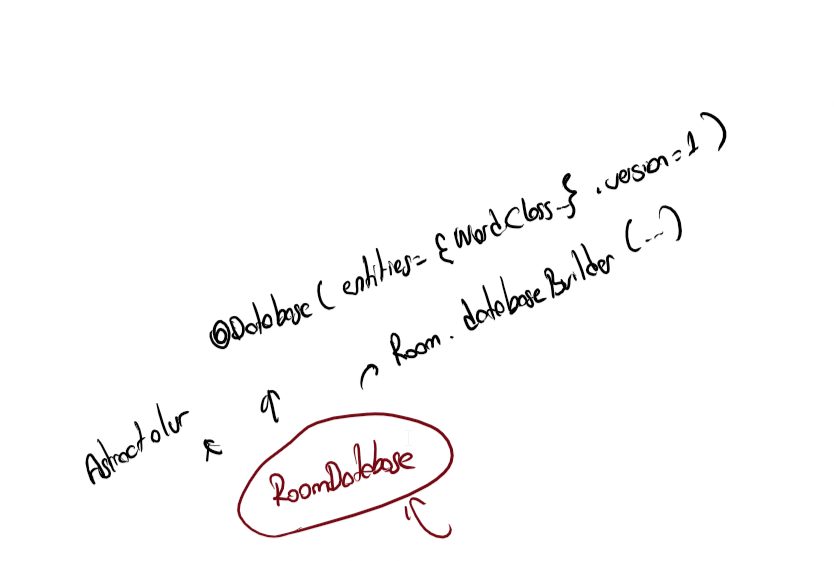 @Database ( entities= {WordClass..} , version=1 )
Room. databaseBuilder (...)
Astract olur
RoomDatabase